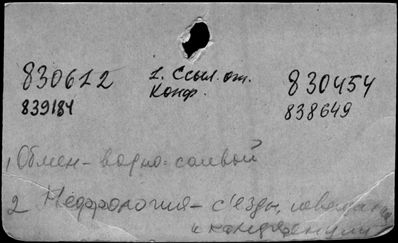 830612 1. Ссыл. от. 830454
839184 Конф. 838649
1 Обмен - водно-солевой
2 Нефрология - съезды, совещания
и конференции